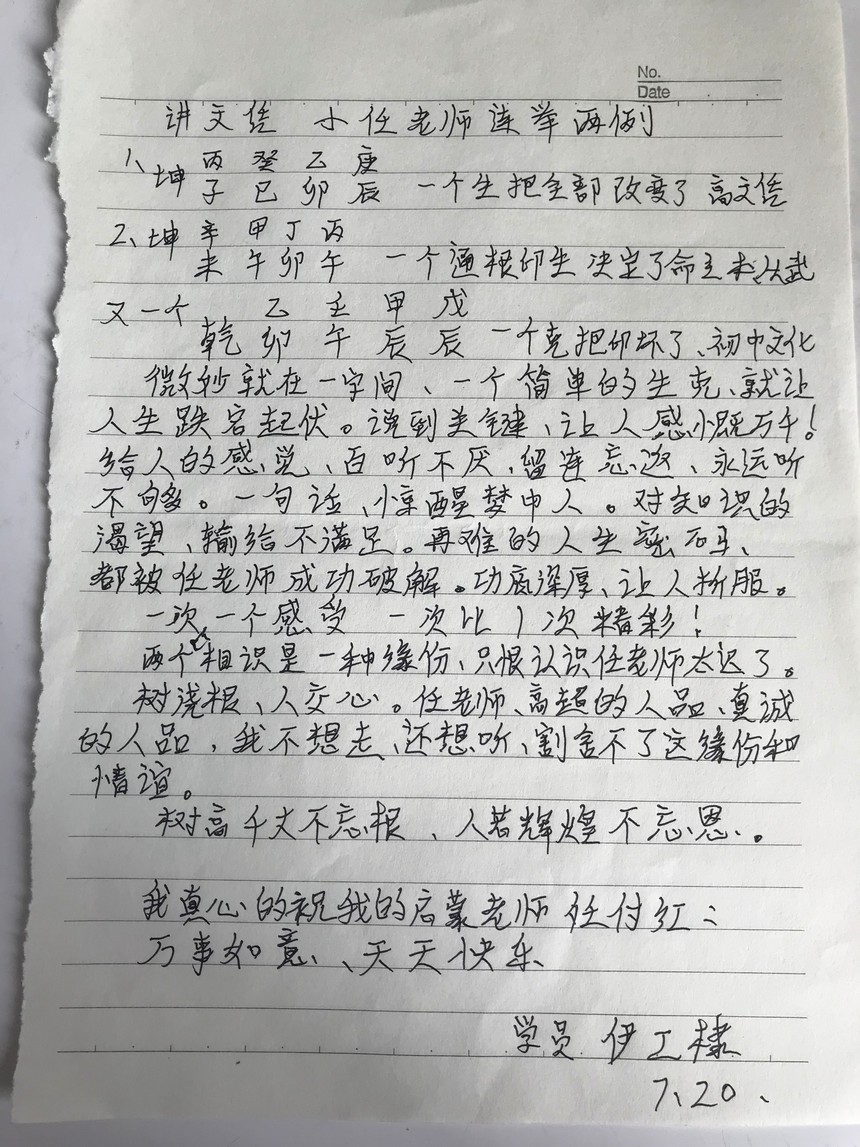 No.
Date
讲文凭 小任老师连举两例
1、坤 丙 癸 乙 庚
子 巳 卯 辰 一个生把全部改变了高文凭
2、坤 辛 甲 丁 丙
未 午 卯 午 一个通根印生决定了命主 从武
又一个 乙 壬 甲 戊
乾 卯 午 辰 辰 一个克把印坏了、初中文化
微妙就在一字间、一个简单的生克、就让
人生跌宕起伏。说到关键、让人感慨万千!
给人的感觉、百听不厌,留连忘返、永远听
不够。一句话、惊醒梦中人。对知识的
渴望、输给不满足。再难的人生密码、
都被任老师成功破解。功底深厚、让人折服。
一次一个感受 一次比1次精彩!
两个相识是一种缘份、只恨认识任老师太迟了。
树浇根、人交心。任老师、高超的人品、真诚
的人品,我不想走、还想听、割舍不了这缘份和
情谊。
树高千丈不忘根、人若辉煌不忘恩。
我真心的祝我的启蒙老师任付红:
万事如意、天天快乐
学员 伊工棣
7、20、